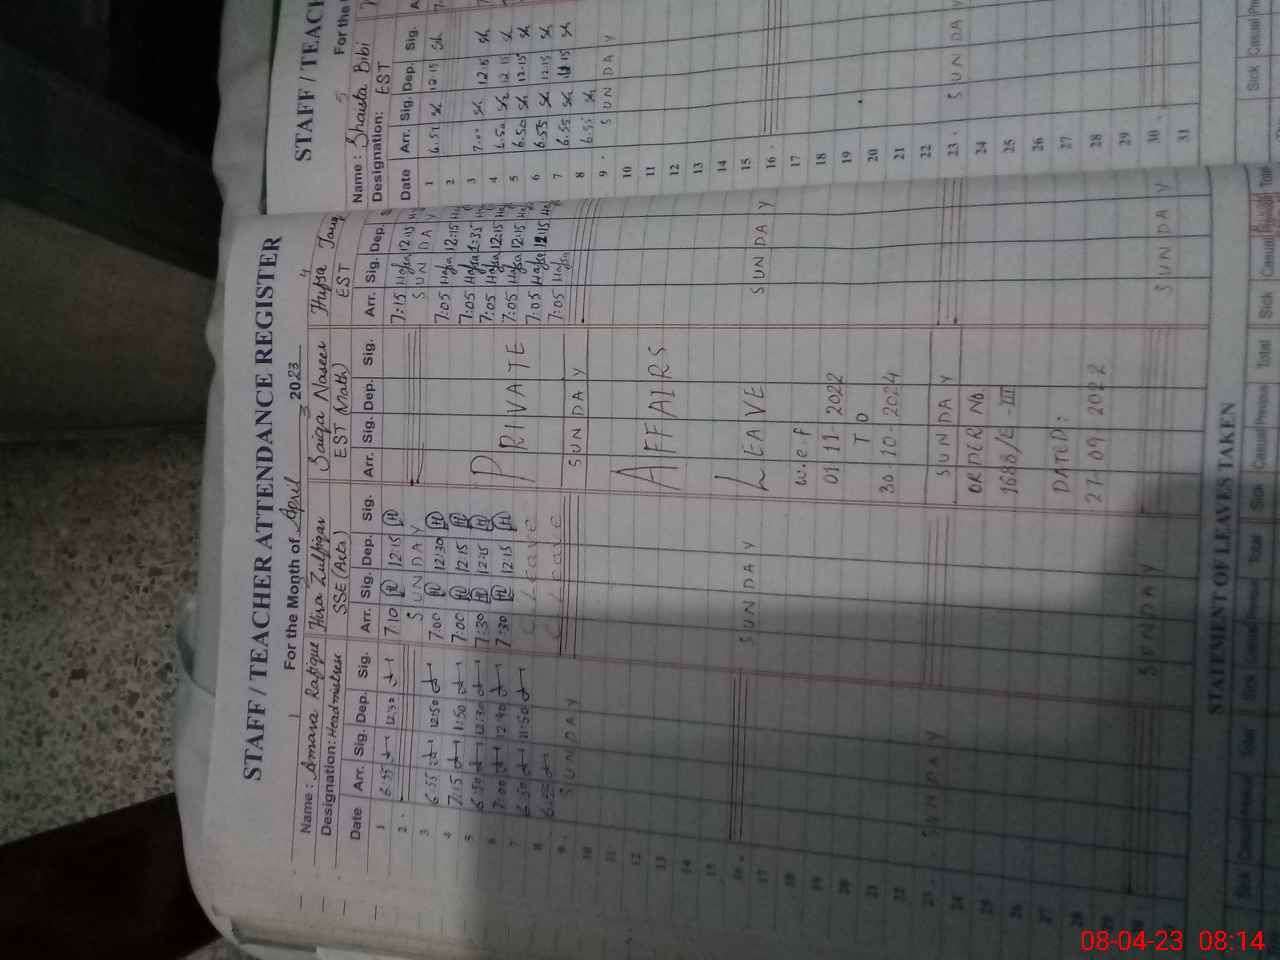 STAFF / TEACHER ATTENDANCE REGISTER
For the Month of April 2023
Name: Amara Rafique
Designation: Headmistress
Hira Zulfiqar
SSE (Arts)
3
Saiqa Naseer
EST (Math)
4
EST
Date Arr. Sig. Dep. Sig. Arr. Sig. Dep. Sig. Arr. Sig. Dep. Sig. Arr. Sig. Dep.
1 6:55 12:30 7:10 12:15 7:15 Hafsa 12:15
2. SUNDAY SUNDAY
3 6:55 12:50 7:00 12:30 7:05 Hafsa 12:15
4 7:15 11:50 7:00 12:15 7:05 Hafsa 1:35
5 6:50 12:30 7:30 12:15 7:05 Hafsa 12:15
6 7:00 12:40 7:30 12:15 7:05 Hafsa 12:15
7 6:50 11:50 C/Leave PRIVATE 7:05 Hafsa 12:15
8 6:55 C/Leave 7:05 Hafsa
9. SUNDAY SUNDAY
10
11
12 AFFAIRS
13
14
15
16. SUNDAY SUNDAY
17 LEAVE
18 w.e.f
19 01-11-2022
20 TO
21 30-10-2024
22
23. SUNDAY SUNDAY
24 ORDER NO
25 1688/E-III
26
27 DATED:
28 27-09-2022
29
30 SUNDAY SUNDAY
STATEMENT OF LEAVES TAKEN
Sick Casual Previous Total Sick Casual Previous Total Sick Casual Previous Total Sick Casual Previous Total
STAFF / TEACH
For the
5
Name: Shaista Bibi
Designation: EST
Date Arr. Sig. Dep. Sig.
1 6:51 Sh 12:15 Sh
2
3 7:00 Sh 12:15 Sh
4 6:50 Sh 12:15 Sh
5 6:50 Sh 12:15 Sh
6 6:55 Sh 12:15 Sh
7 6:55 Sh 12:15 Sh
8 6:55 Sh
9. SUNDAY
10
11
12
13
14
15
16.
17
18
19
20
21
22
23. SUNDAY
24
25
26
27
28
29
30.
31
Sick Casual
08-04-23 08:14